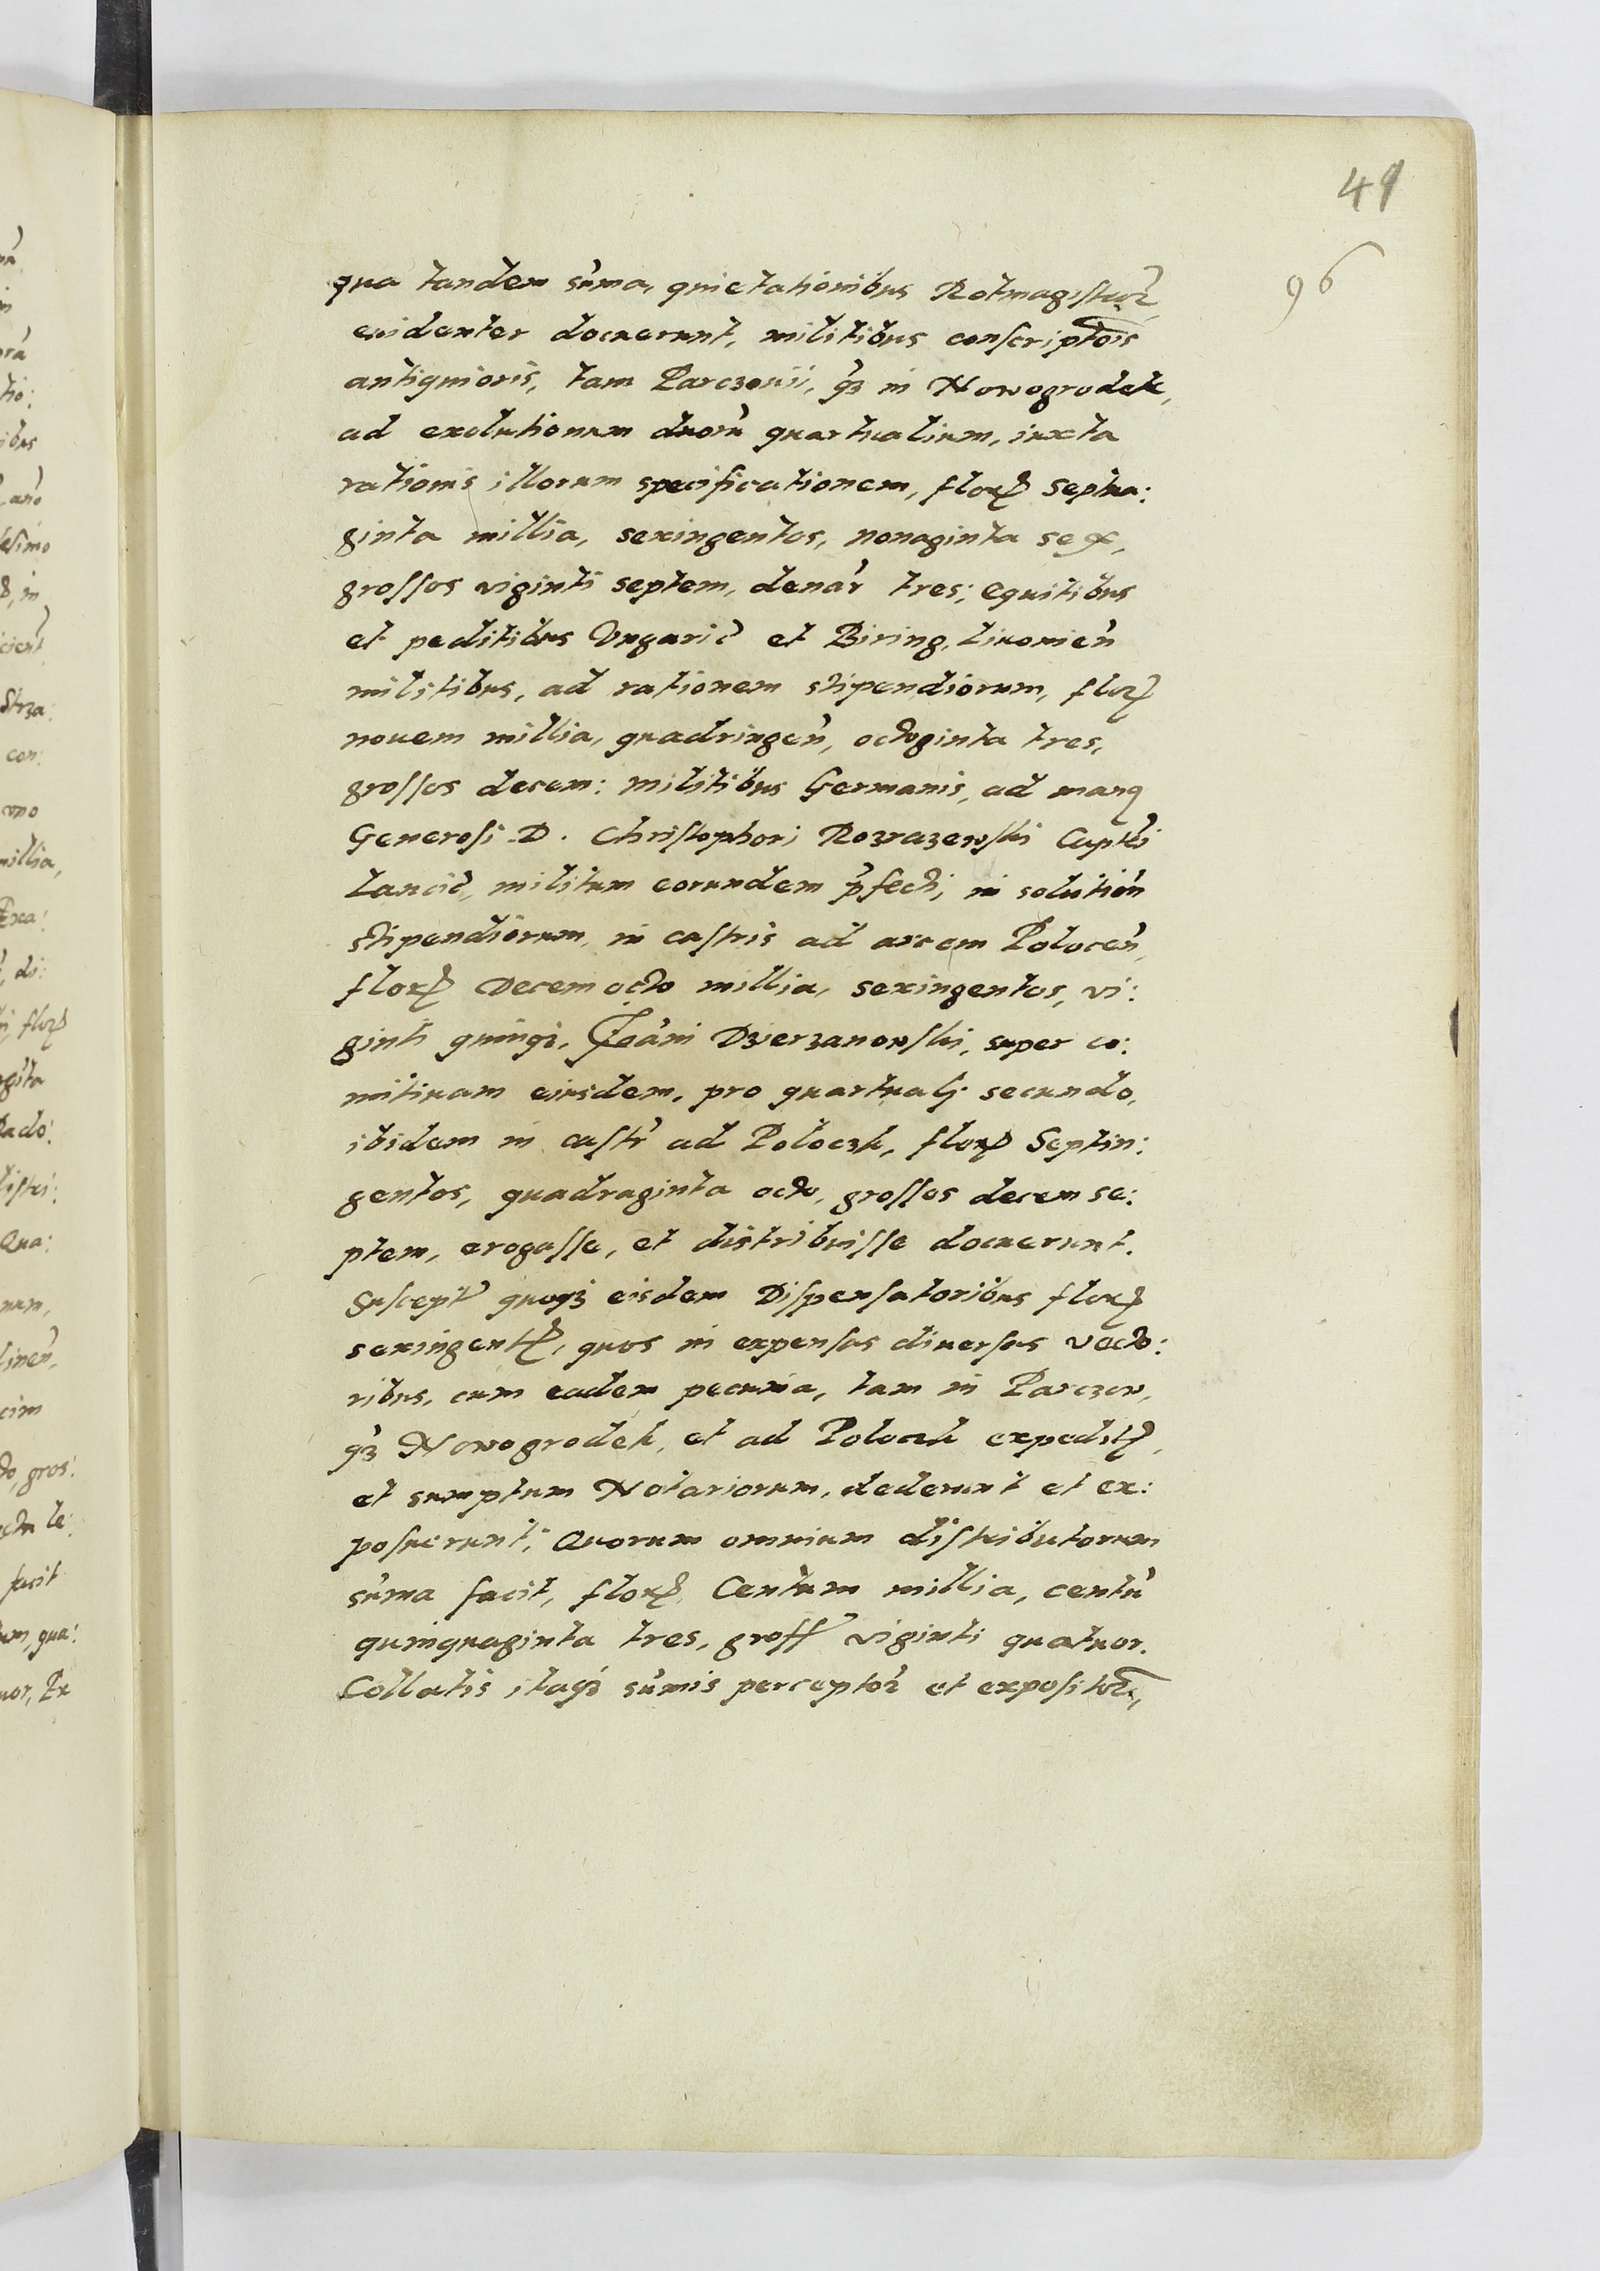 41
96
qua tandem suma, quietationibus Rotmagistror
euidenter docuerunt, militibus conscriptois
antiquioris, tam Parczouii, qz in Nowogrodek,
ad exolutionem duoru quartualium, iuxta
rationis illorum specificationem, flor septua:
ginta millia, sexingentos, nonaginta sex,
grossos viginti septem, denar tres; equitibus
et peditibus Vngaric et Biring, Liuonien
militibus, ad rationem stipendiorum, flor
nouem millia, quadringen, octoginta tres,
grossos decem: militibus Germanis, ad manq
Generosi D. Christophori Rozrazewski Captei
Lancic, militum eorundem pfecti, in solution
stipendiorum, in castris ad arcem Polocen,
flor Decem octo millia, sexingentos, vi:
ginti quinqz, Joani Dzierzanowski, super co:
mitiuam eiusdem, pro quartuali secundo,
ibidem in castr ad Poloczk, flor Septin:
gentos, quadraginta octo, grossos decem se:
ptem, erogasse, et distribuisse docuerunt.
Suscept quoqz eisdem Dispensatoribus flor
sexingent, quos in expensas diuersas vecto:
ribus, cum eadem pecunia, tam in Parczow,
qz Nowogrodek, et ad Polocek expedit,
et sumptum Notariorum, dederunt et ex:
posuerunt; Quorum omnium distributorum
suma facit, flor Centum millia, centu
quinquaginta tres, gross viginti quatuor.
Collatis itaqz sumis perceptor et expositor,